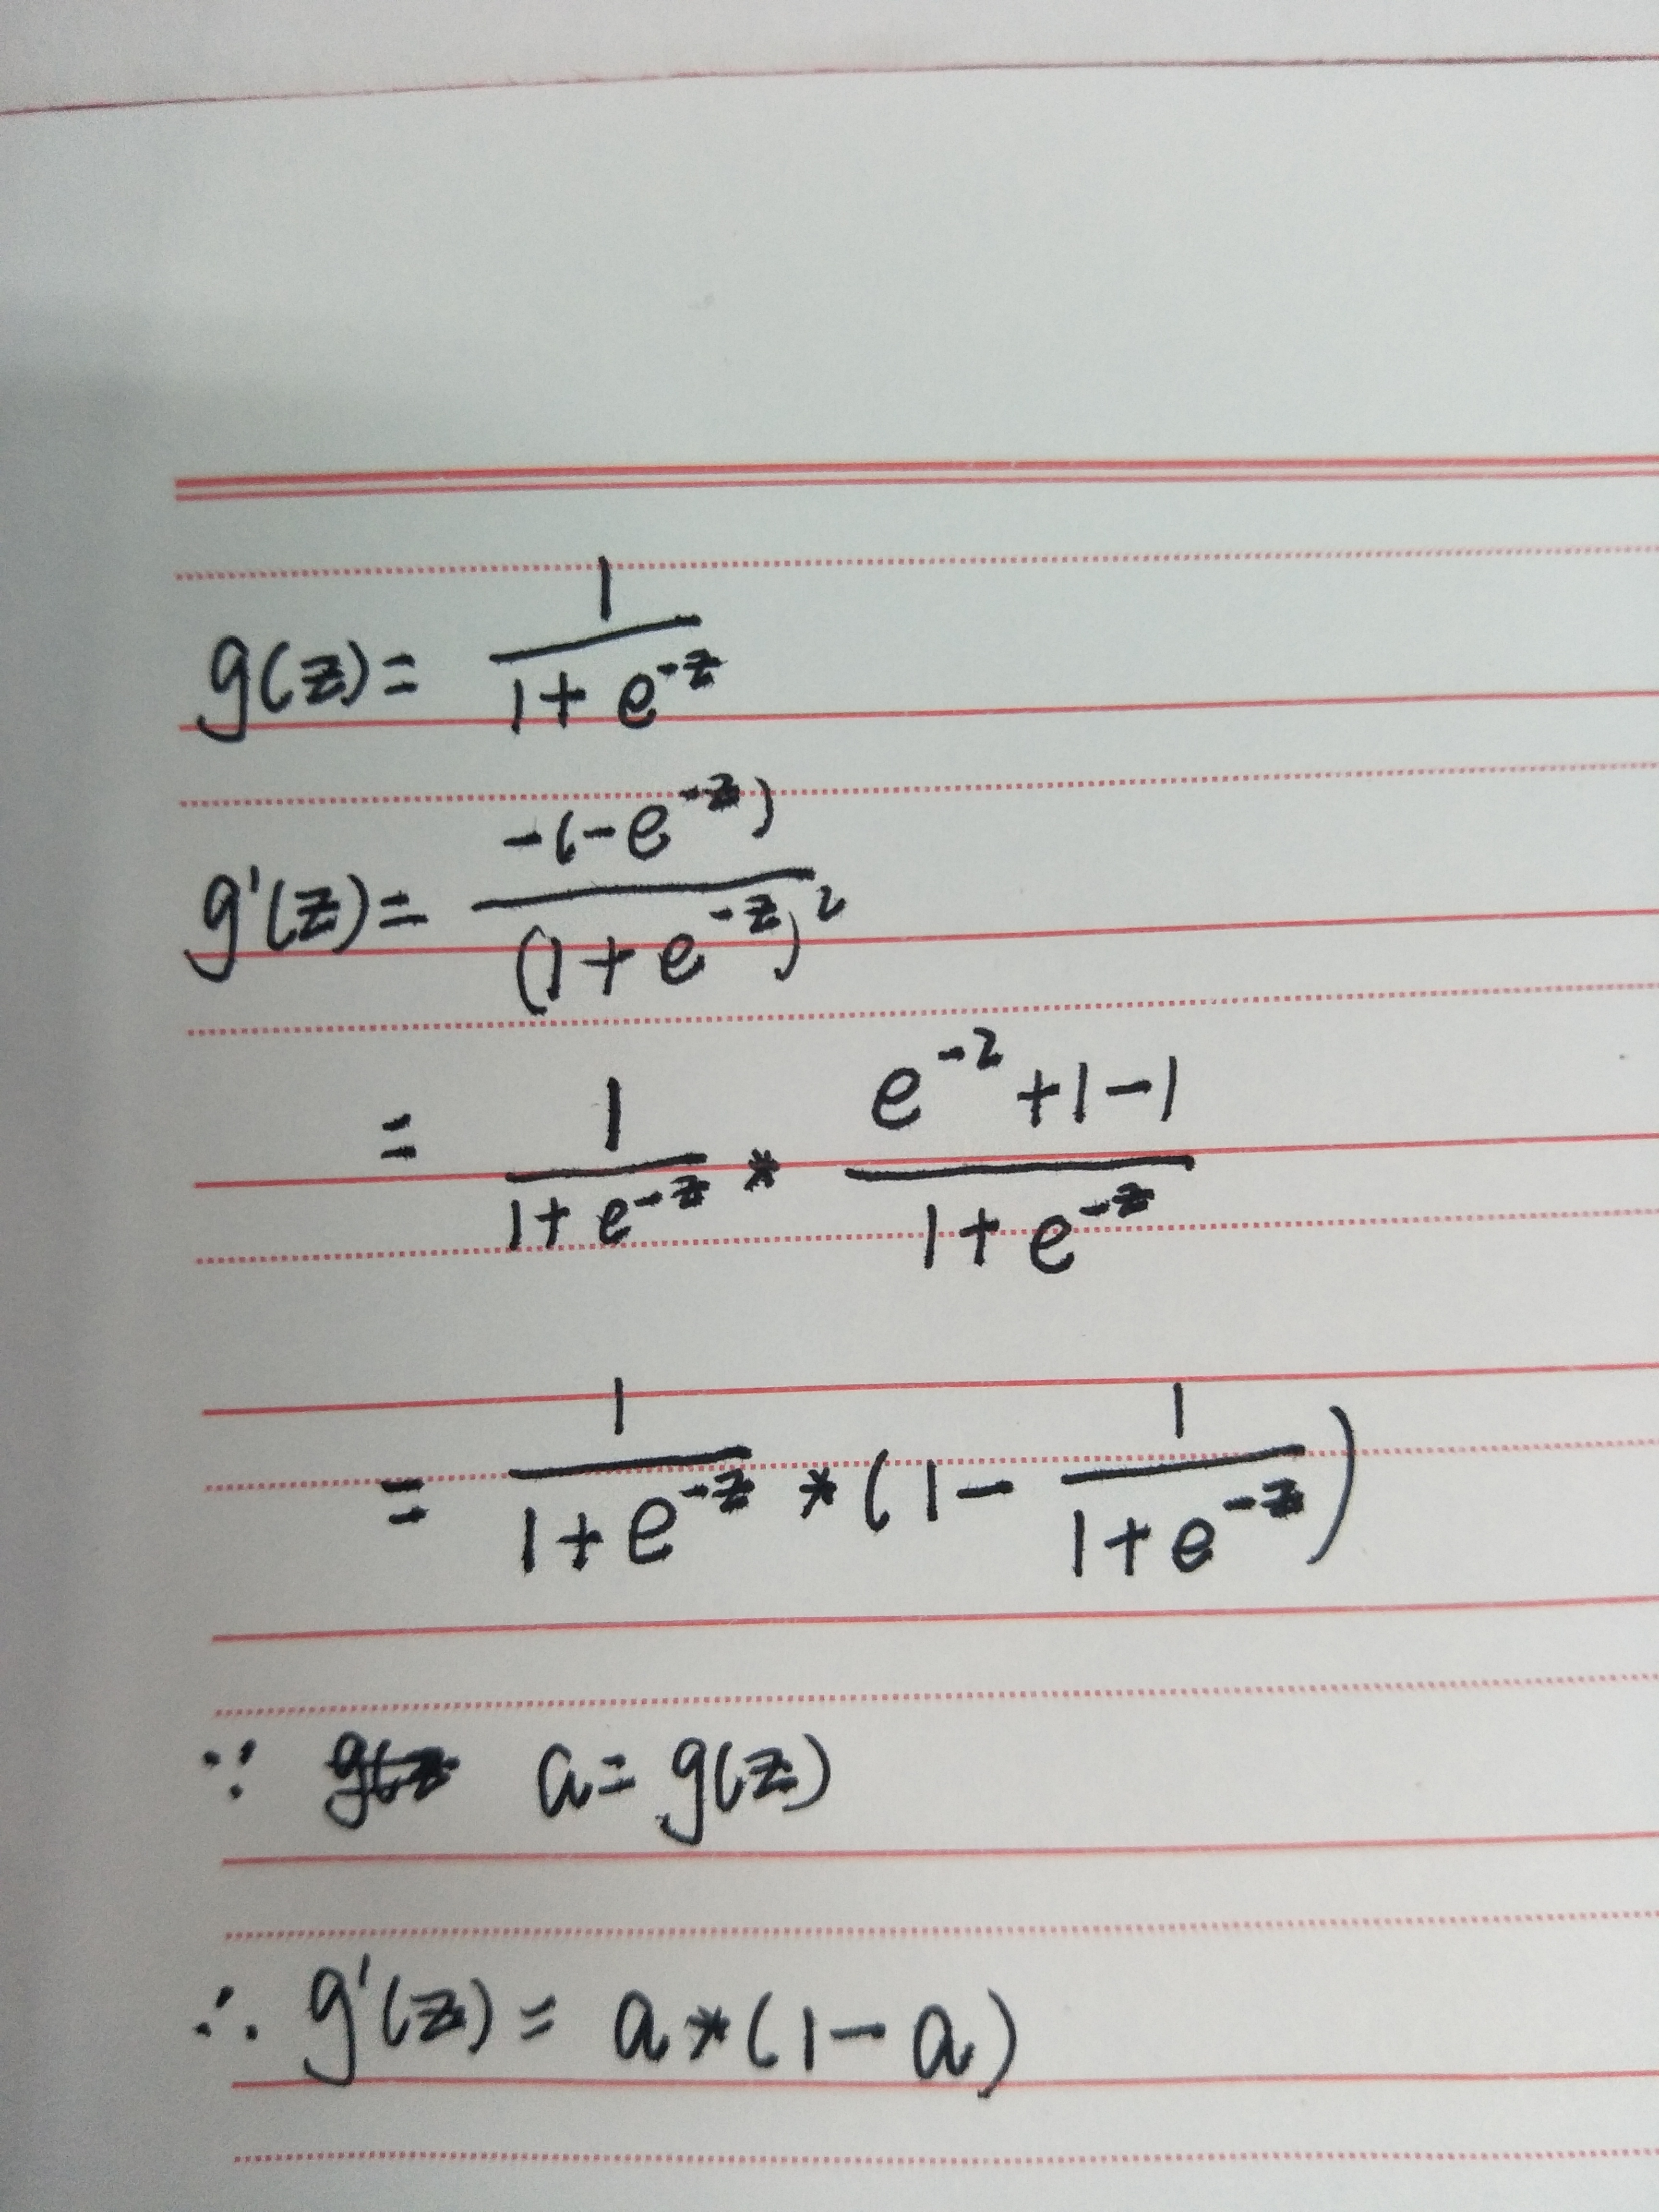 g(z) = 1 / (1 + e^{-z})
g'(z) = -(-e^{-z}) / (1 + e^{-z})^2
= 1 / (1 + e^{-z}) * (e^{-2} + 1 - 1) / (1 + e^{-z})
= 1 / (1 + e^{-z}) * (1 - 1 / (1 + e^{-z}))
∵ a = g(z)
∴ g'(z) = a * (1 - a)